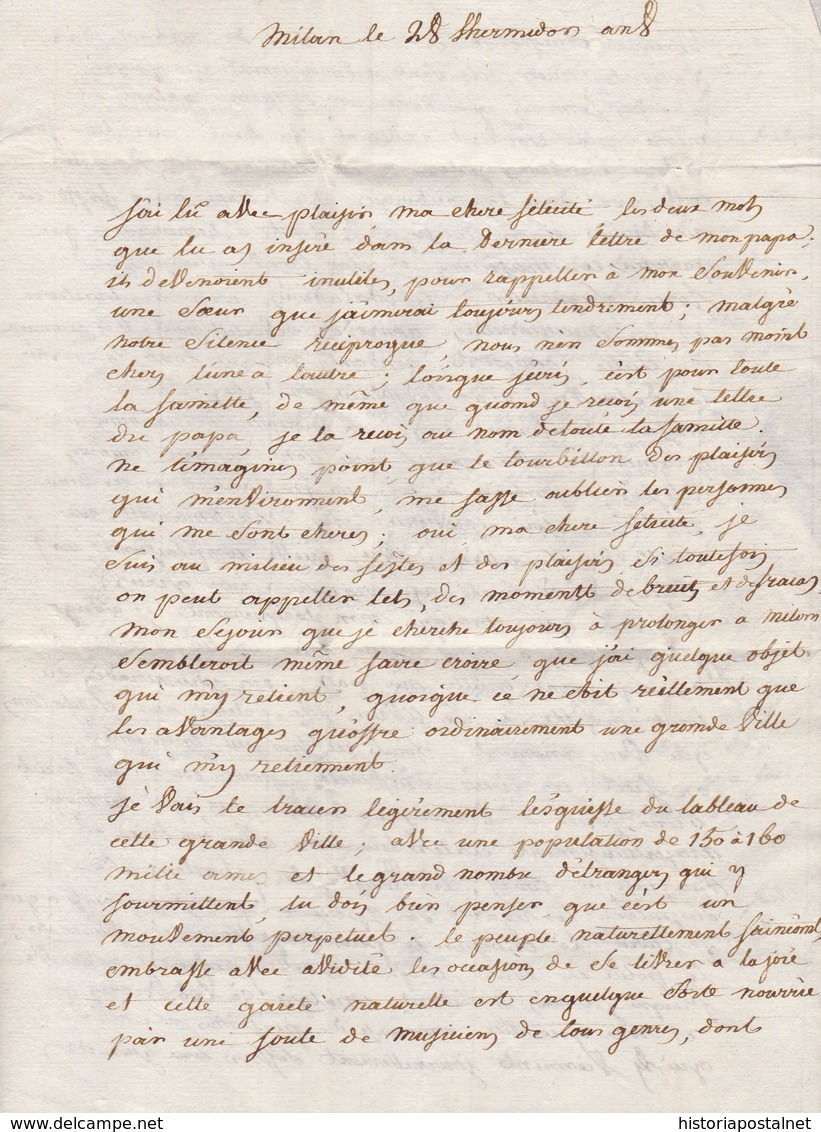 Milan le 28 thermidor an 8
J'ai lû avec plaisir, ma chere félicité, les deux mots
que tu as inséré dans la derniere lettre de mon papa;
ils devenoient inutiles, pour rappeller à mon souvenir,
une soeur que j'aimerai toujours tendrement; malgré
notre silence réciproque, nous n'en sommes pas moins
chers l'une à l'autre; lorsque j'écris, c'est pour toute
la famille, de même que quand je reçois une lettre
du papa, je la reçois au nom de toute la famille.
ne t'imagines point, que le tourbillon des plaisirs
qui m'environnent, me fasse oublier les personnes
qui me sont cheres; oui, ma chere félicité, je
suis au milieu des festes et des plaisirs, si toutefois
on peut appeller tels, des moments de bruit et de fracas.
Mon séjour que je cherche toujours à prolonger à Milan
sembleroit même faire croire que j'ai quelque objet
qui m'y retient, quoique ce ne soit réellement que
les avantages qu'offre ordinairement une grande ville
qui m'y retiennent.
Je vais te tracer légèrement l'esquisse du tableau de
cette grande ville; avec une population de 150 à 160
mille ames et le grand nombre d'étrangers qui y
fourmillent, tu dois bien penser que c'est un
mouvement perpetuel. le peuple naturellement fainéant,
embrasse avec avidité les occasions de se livrer à la joie
et cette gaieté naturelle est en quelque sorte nourrie
par une foule de musiciens de tous genres, dont
historiapostalnet